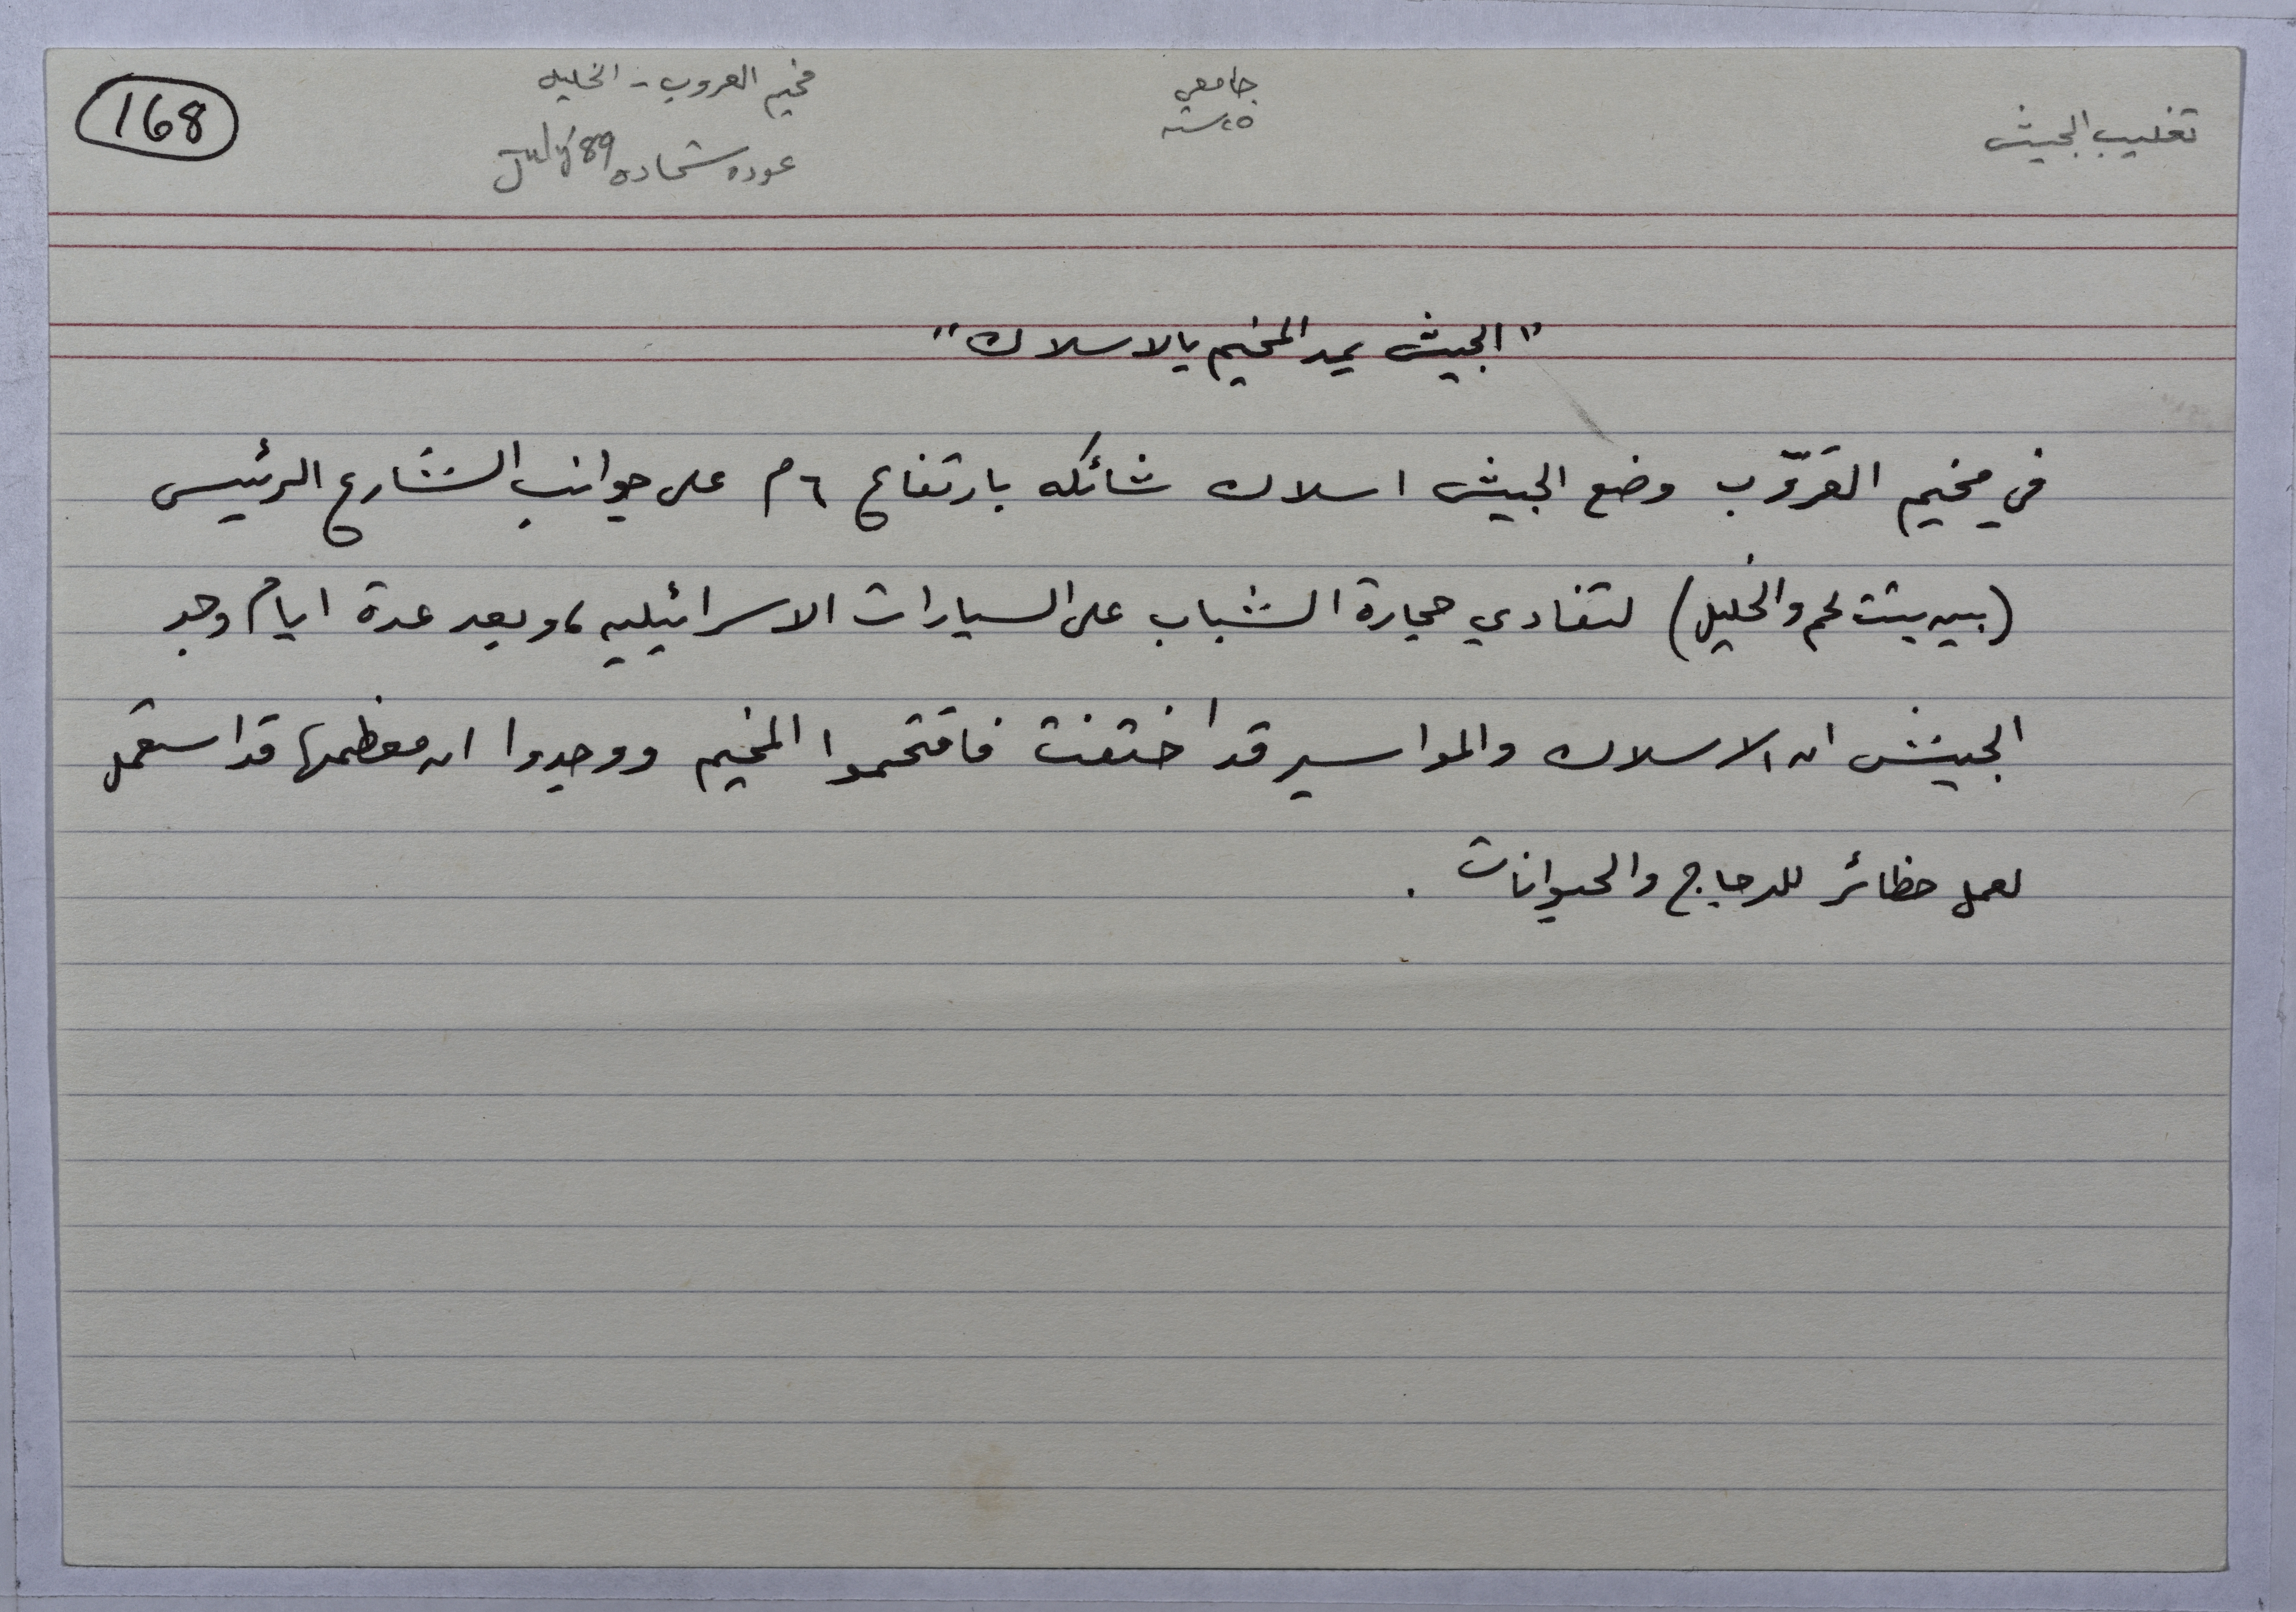 168
مخيم العروب - الخليل
جامعي
تغليب الجيش
٢٥ سنه
عوده شحاده July '89
"الجيش يمد المخيم بالاسلاك"
في مخيم العرّوب وضع الجيش اسلاك شائكه بارتفاع ٦ م على جوانب الشارع الرئيسي
(بين بيت لحم والخليل) لتفادي حجارة الشباب على السيارات الاسرائيليه، وبعد عدة ايام وجد
الجيش ان الاسلاك والمواسير قد اختفت فاقتحموا المخيم ووجدوا ان معظمها قد استعمل
لعمل حظائر للدجاج والحيوانات .